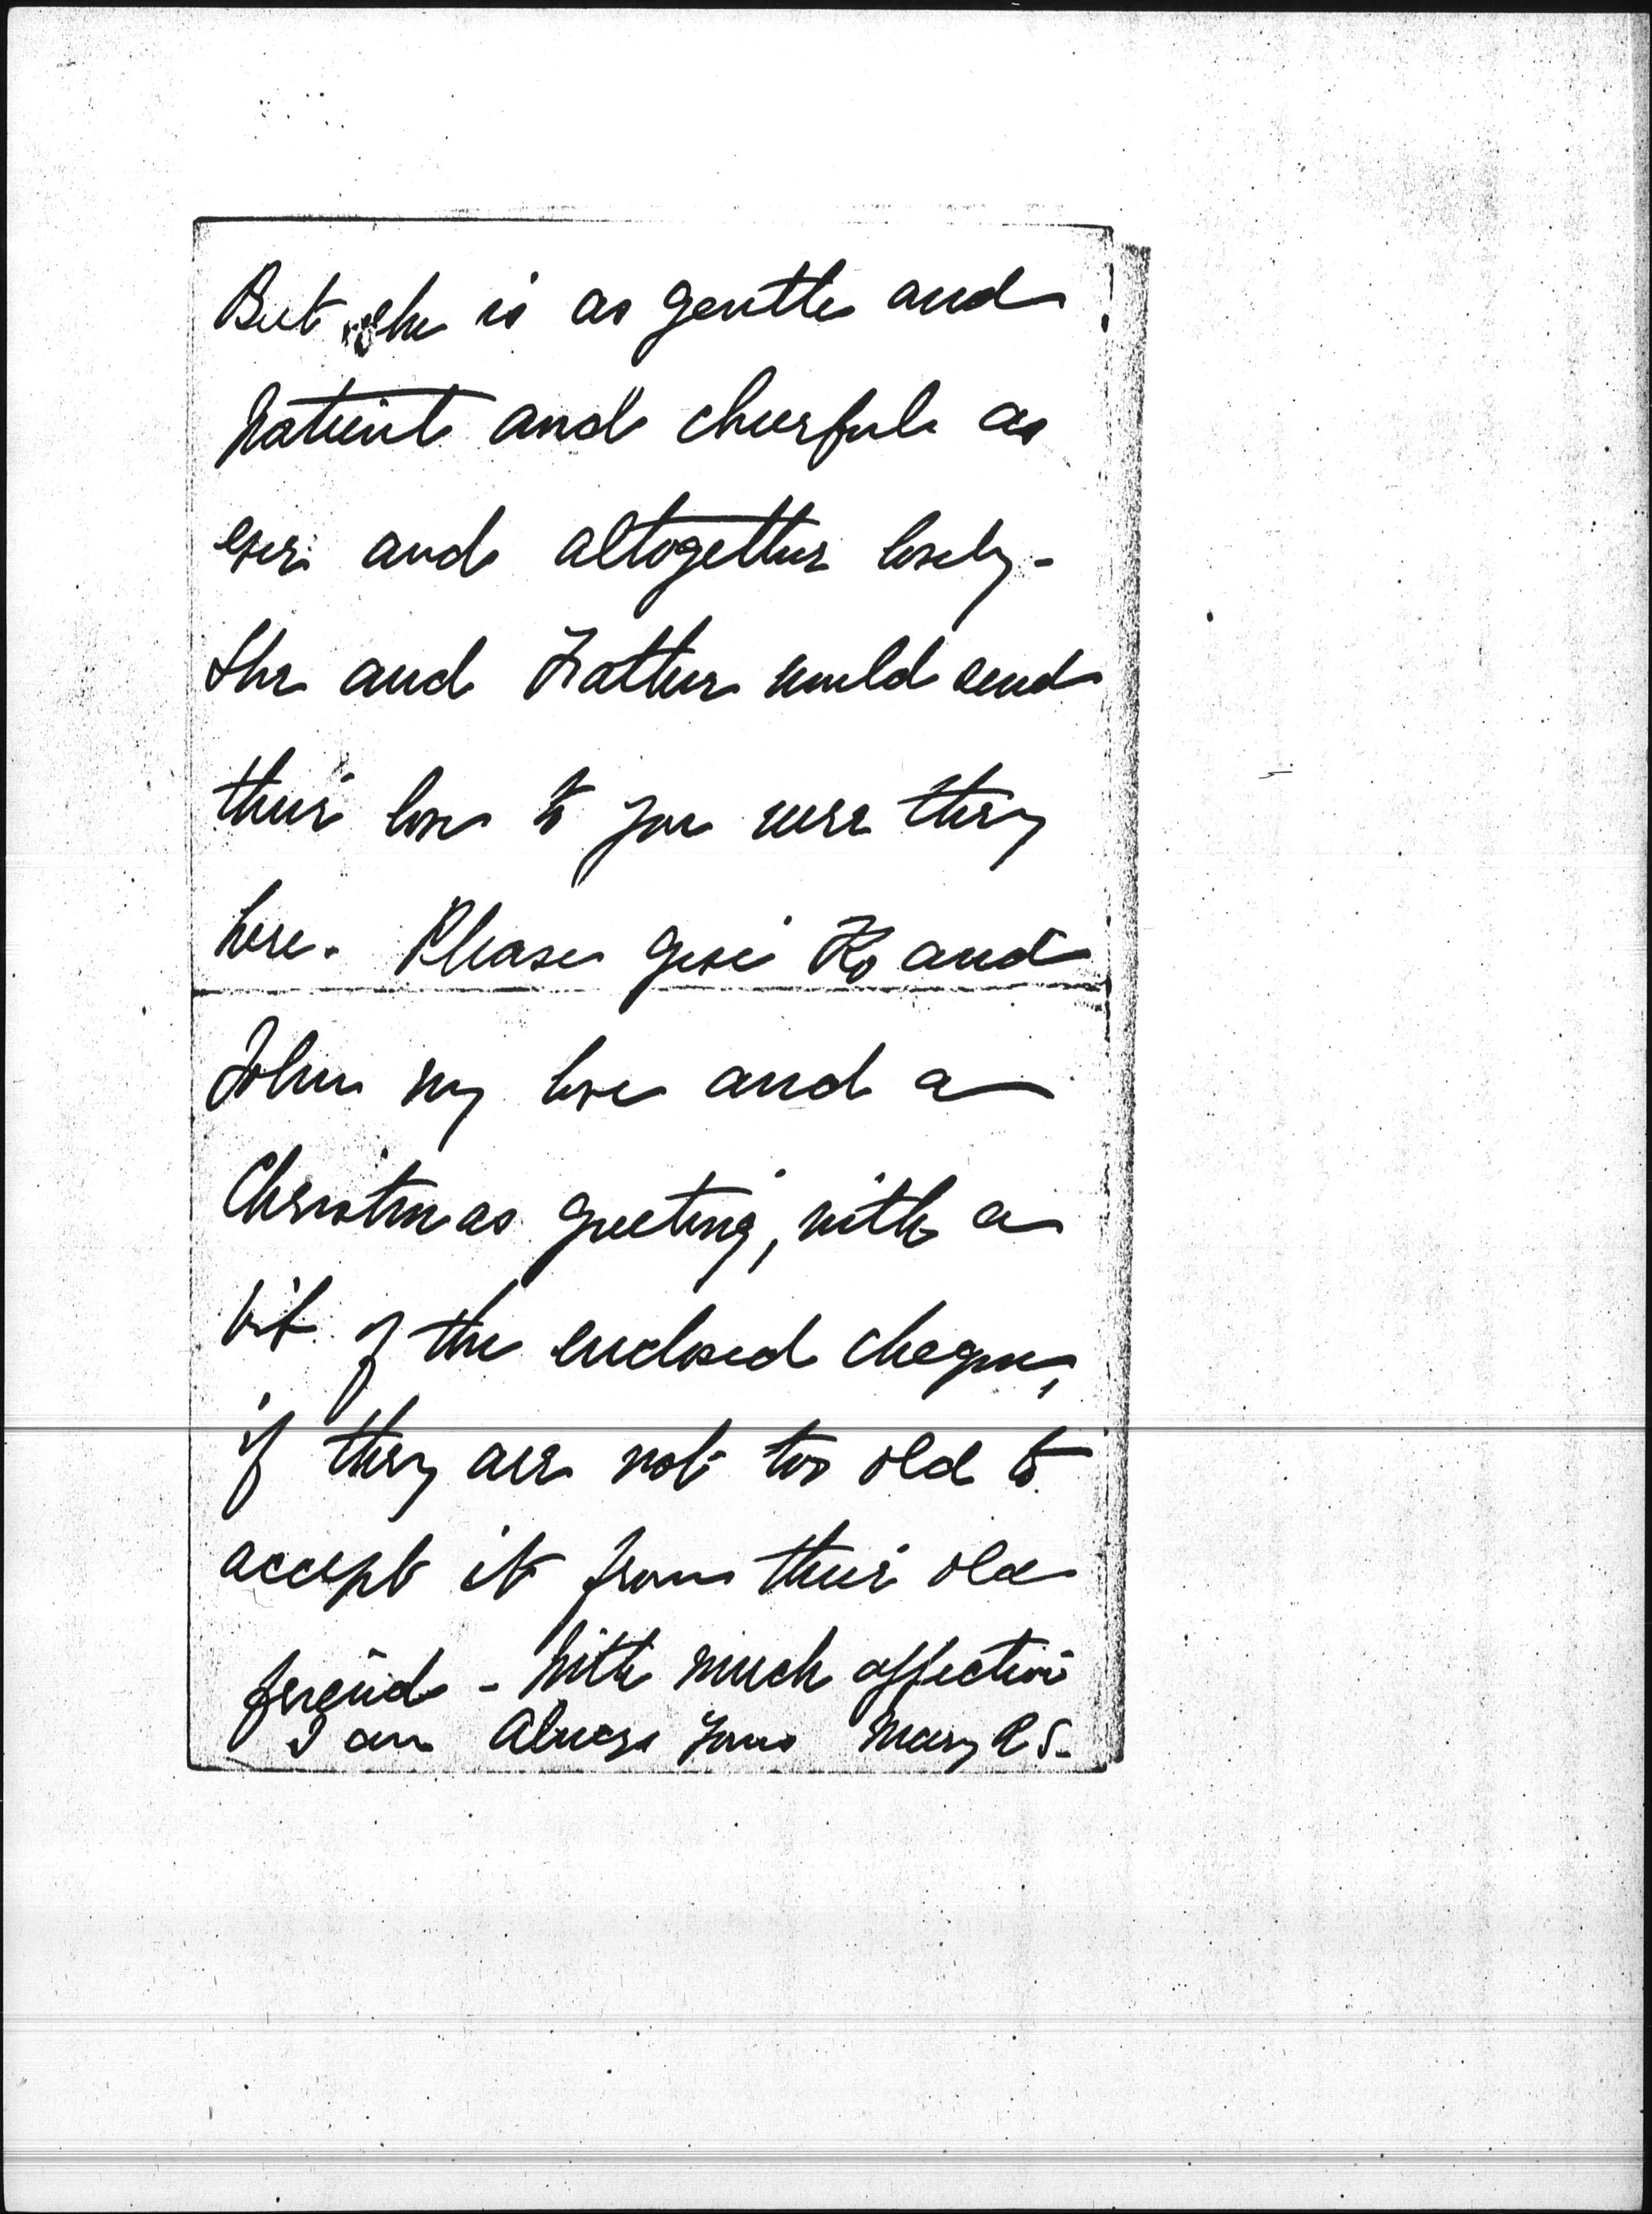 But she is as gentle and
patient and cheerful as
ever and altogether lovely -
She and Father would send
their love to you were they
here. Please give Ko and
John my love and a
Christmas greeting, with a
bit of the enclosed cheque,
if they are not too old to
accept it from their old
friend - With much affection
I am Always yours Mary R S.